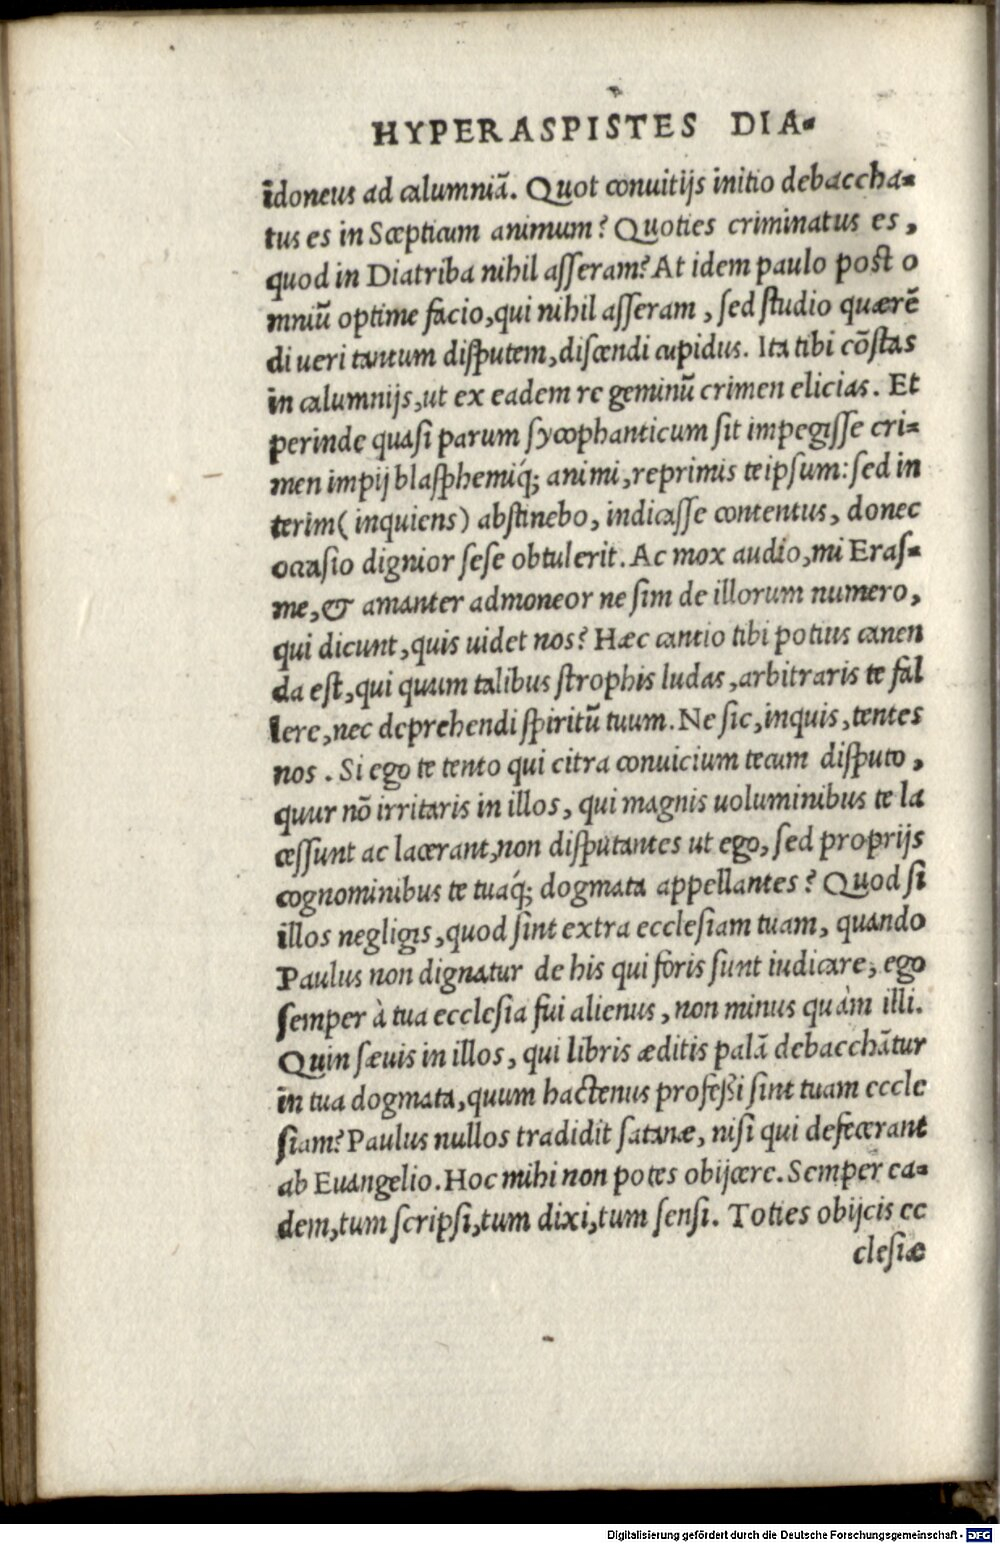 HYPERASPISTES DIA-
idoneus ad calumniã. Quot conuitijs initio debaccha-
tus es in Scepticum animum? Quoties criminatus es,
quod in Diatriba nihil aſſeram? At idem paulo poſt o
mniũ optime facio, qui nihil aſſeram, ſed ſtudio quærẽ
di ueri tantum diſputem, diſcendi cupidus. Ita tibi cõſtas
in calumnijs, ut ex eadem re geminũ crimen elicias. Et
perinde quaſi parum ſycophanticum ſit impegiſſe cri-
men impij blaſphemiq́; animi, reprimis teipſum: ſed in
terim (inquiens) abſtinebo, indicaſſe contentus, donec
occaſio dignior ſeſe obtulerit. Ac mox audio, mi Eraſ-
me, & amanter admoneor ne ſim de illorum numero,
qui dicunt, quis uidet nos? Hæc cantio tibi potius canen
da eſt, qui quum talibus ſtrophis ludas, arbitraris te fal
lere, nec deprehendi ſpiritũ tuum. Ne ſic, inquis, tentes
nos. Si ego te tento qui citra conuicium tecum diſputo,
quur nõ irritaris in illos, qui magnis uoluminibus te la
ceſſunt ac lacerant, non diſputantes ut ego, ſed proprijs
cognominibus te tuaq́; dogmata appellantes? Quod ſi
illos negligis, quod ſint extra eccleſiam tuam, quando
Paulus non dignatur de his qui foris ſunt iudicare, ego
ſemper à tua eccleſia fui alienus, non minus quàm illi.
Quin ſæuis in illos, qui libris æditis palã debacchãtur
in tua dogmata, quum hactenus profeßi ſint tuam eccle
ſiam? Paulus nullos tradidit ſatanæ, niſi qui defecerant
ab Euangelio. Hoc mihi non potes obijcere. Semper ea-
dem, tum ſcripſi, tum dixi, tum ſenſi. Toties obijcis ec
cleſiæ
Digitalisierung gefördert durch die Deutsche Forschungsgemeinschaft - DFG